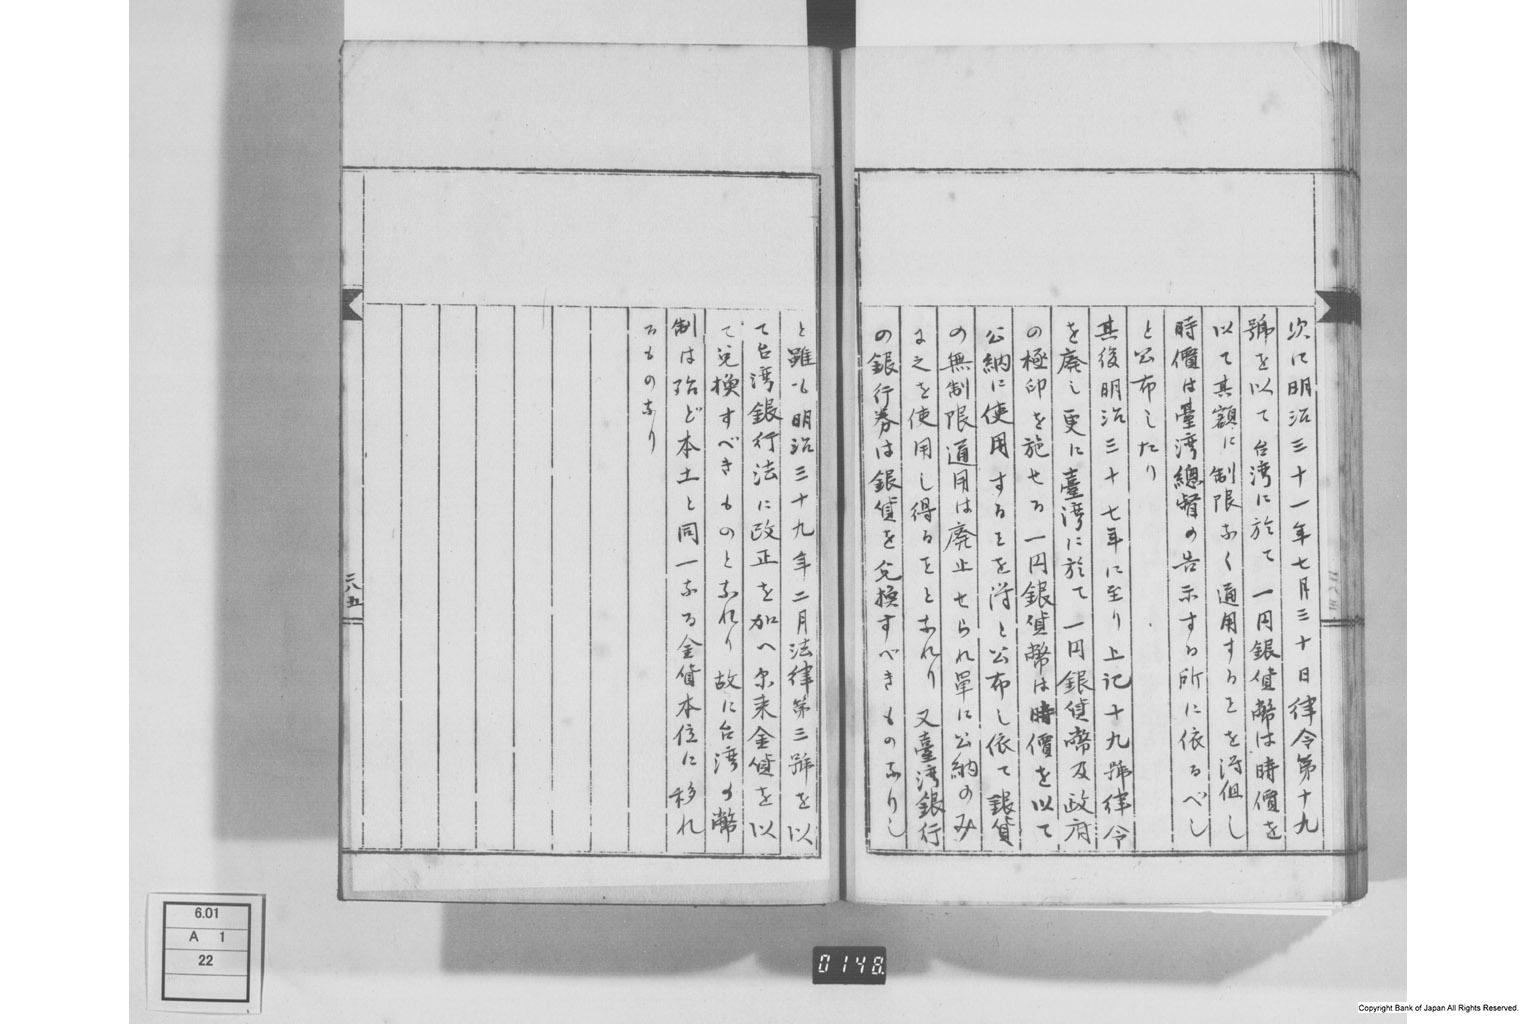 次に明治三十一年七月三十日律令第十九
號を以て台湾に於て一円銀貨幣は時價を
以て其額に制限なく通用することを得但し
時價は臺湾總督の告示する所に依るべし
と公布したり
其後明治三十七年に至り上記十九號律令
を廃し更に臺湾に於て一円銀貨幣及政府
の極印を施せる一円銀貨幣は時價を以て
公納に使用することを得と公布し依て銀貨
の無制限通用は廃止せられ單に公納のみ
に之を使用し得ることとなれり又臺湾銀行
の銀行券は銀貨を兌換すべきものなりし
と雖も明治三十九年二月法律第三號を以
て台湾銀行法に改正を加へ尓来金貨を以
て兌換すべきものとなれり故に台湾の幣
制は殆ど本土と同一なる金貨本位に移れ
るものなり
二八五
6.01
A 1
22
0148
Copyright Bank of Japan All Rights Reserved.